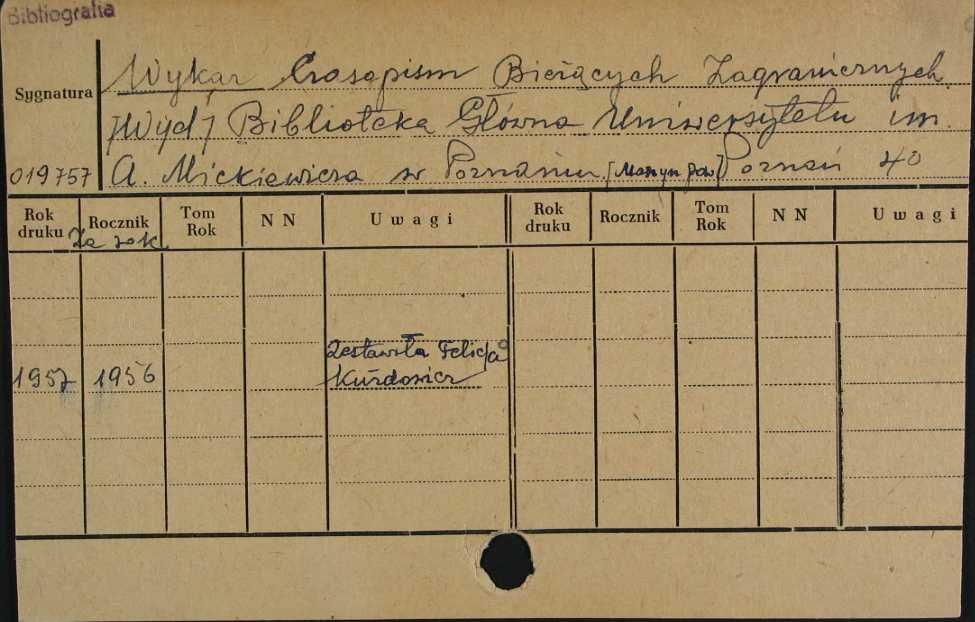 Bibliografia
Wykaz Czasopism Bieżących Zagranicznych
Sygnatura
[Wyd] Biblioteka Główna Uniwersytetu im.
019757 A. Mickiewicza w Poznaniu. [Maszyn pow] Poznań 4°
Rok druku Rocznik Tom Rok N N Uwagi Rok druku Rocznik Tom Rok N N Uwagi
Za rok
Zestawiła Felicja
1957 1956 Kurdowicz